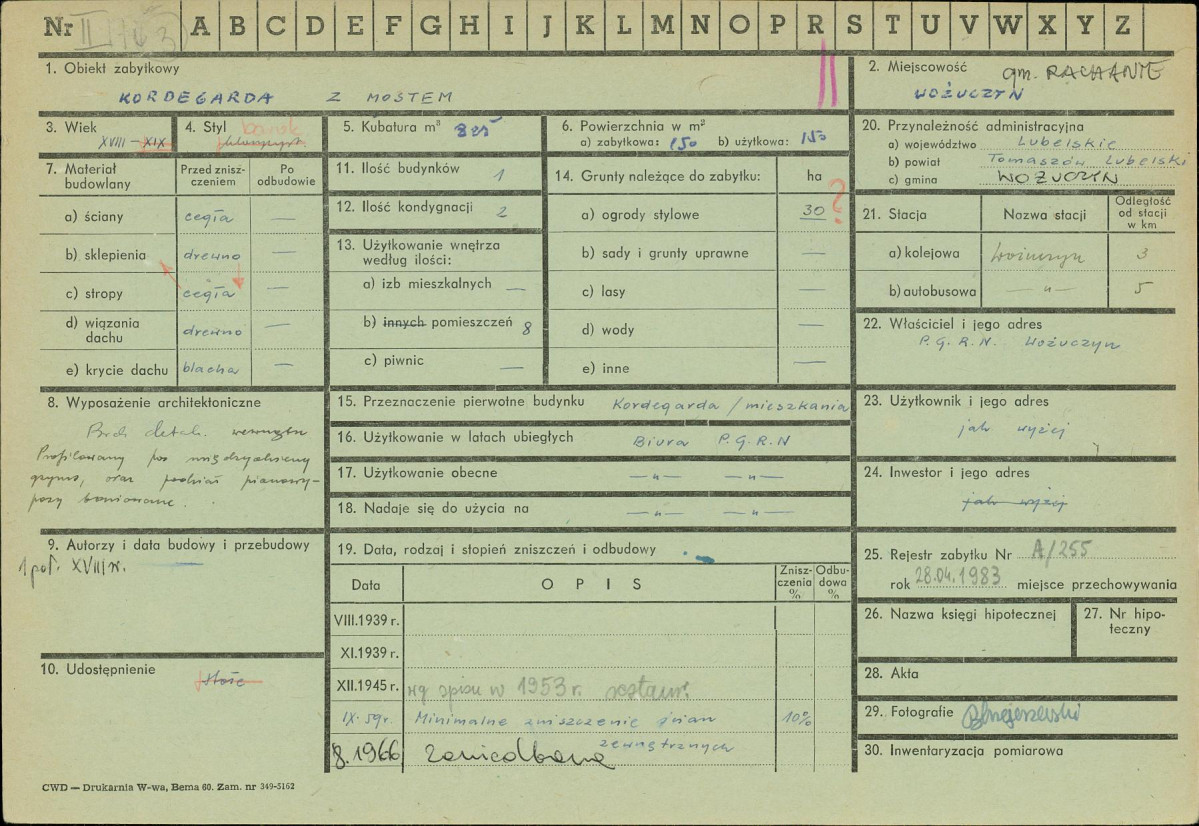 Nr II A B C D E F G H I J K L M N O P R S T U V W X Y Z
1. Obiekt zabytkowy
KORDEGARDA Z MOSTEM
2. Miejscowość gm. RACHANIE
WOŻUCZYN
3. Wiek
XVIII – XIX
4. Styl barok
5. Kubatura m³ 825
6. Powierzchnia w m²
a) zabytkowa: 150 b) użytkowa: 150
7. Materiał budowlany
Przed zniszczeniem
Po odbudowie
a) ściany cegła —
b) sklepienia drewno —
c) stropy cegła —
d) wiązania dachu drewno —
e) krycie dachu blacha —
8. Wyposażenie architektoniczne
Brak detal. wewnątrz
Profilowany pas międzypiętrowy
gzyms, oraz podział pianowy-
pasy boniowane.
9. Autorzy i data budowy i przebudowy
1 poł. XVIII w. —
10. Udostępnienie
11. Ilość budynków 1
12. Ilość kondygnacji 2
13. Użytkowanie wnętrza według ilości:
a) izb mieszkalnych —
b) innych pomieszczeń 8
c) piwnic —
14. Grunty należące do zabytku: ha
a) ogrody stylowe 30 ?
b) sady i grunty uprawne —
c) lasy —
d) wody —
e) inne —
15. Przeznaczenie pierwotne budynku Kordegarda / mieszkania
16. Użytkowanie w latach ubiegłych Biura P.G.R.N
17. Użytkowanie obecne —„— —„—
18. Nadaje się do użycia na —„— —„—
19. Data, rodzaj i stopień zniszczeń i odbudowy
Data OPIS Zniszczenia % Odbudowa %
VIII.1939 r.
XI.1939 r.
XII.1945 r. wg spisu w 1953 r. restaur.
IX. 59r. Minimalne zniszczenie ścian zewnętrznych 10%
8.1966 zaniedbana
20. Przynależność administracyjna
a) województwo Lubelskie
b) powiat Tomaszów Lubelski
c) gmina WOŻUCZYN
21. Stacja Nazwa stacji Odległość od stacji w km
a) kolejowa Wożuczyn 3
b) autobusowa —„— 5
22. Właściciel i jego adres
P.G.R.N. Wożuczyn
23. Użytkownik i jego adres
jak wyżej
24. Inwestor i jego adres
jak wyżej
25. Rejestr zabytku Nr A/255
rok 28.04.1983 miejsce przechowywania
26. Nazwa księgi hipotecznej
27. Nr hipoteczny
28. Akta
29. Fotografie
30. Inwentaryzacja pomiarowa
CWD — Drukarnia W-wa, Bema 60. Zam. nr 349-5162